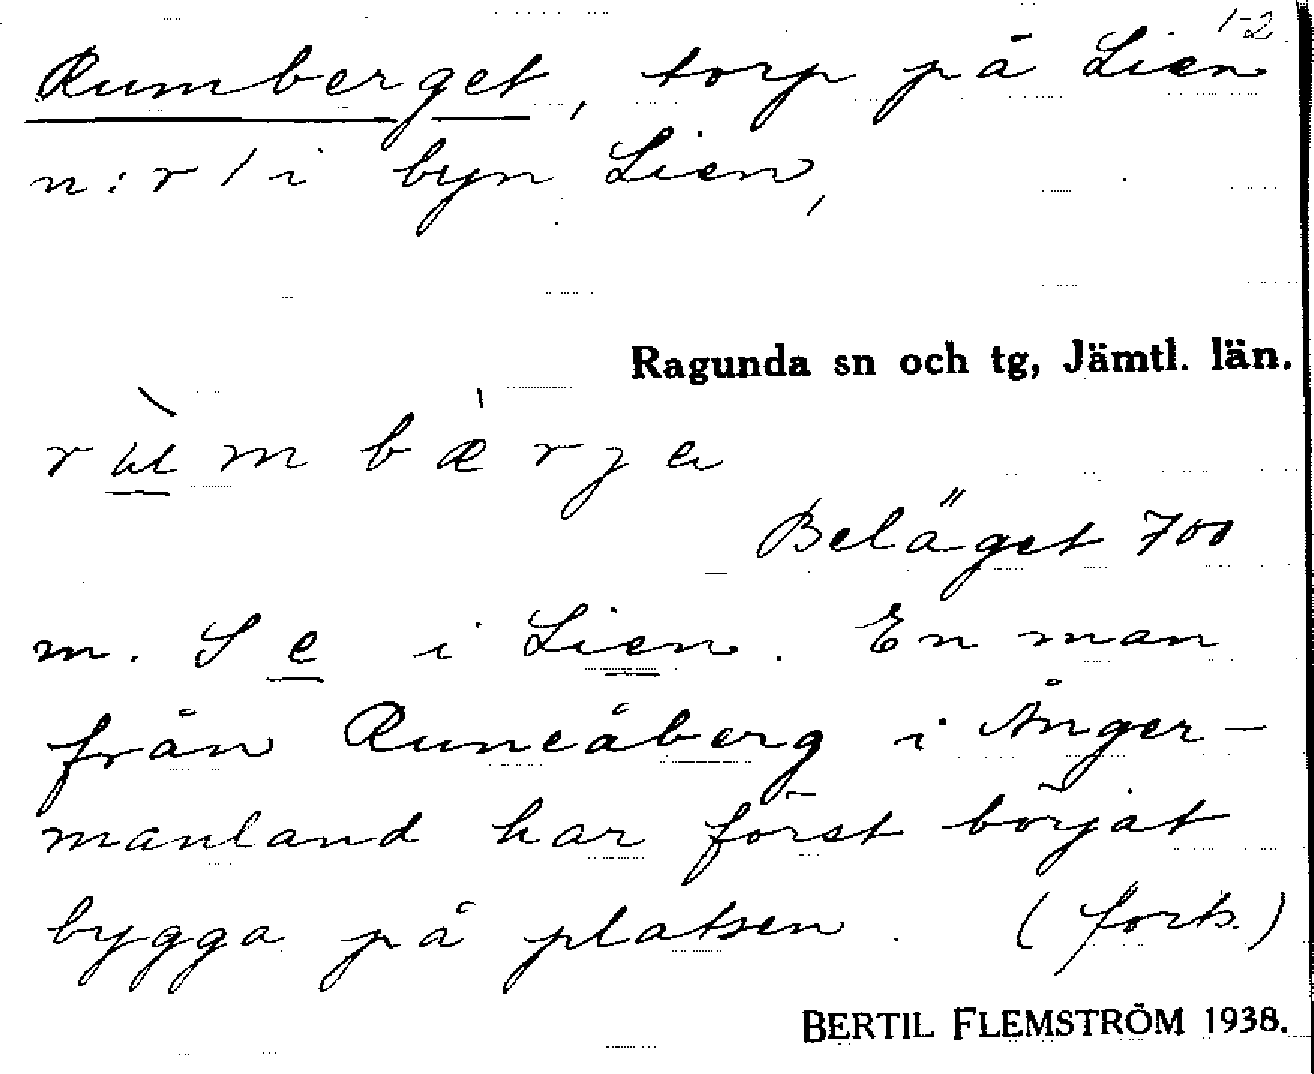 1-2
Rumberget, torp på Lien
n:r 1 i byn Lien,
Ragunda sn och tg, Jämtl. län.
Beläget 700
m. S e i Lien. En man
från Runeåberg i Ånger-
manland har först börjat
bygga på platsen. (forts.)
BERTIL FLEMSTRÖM 1938.